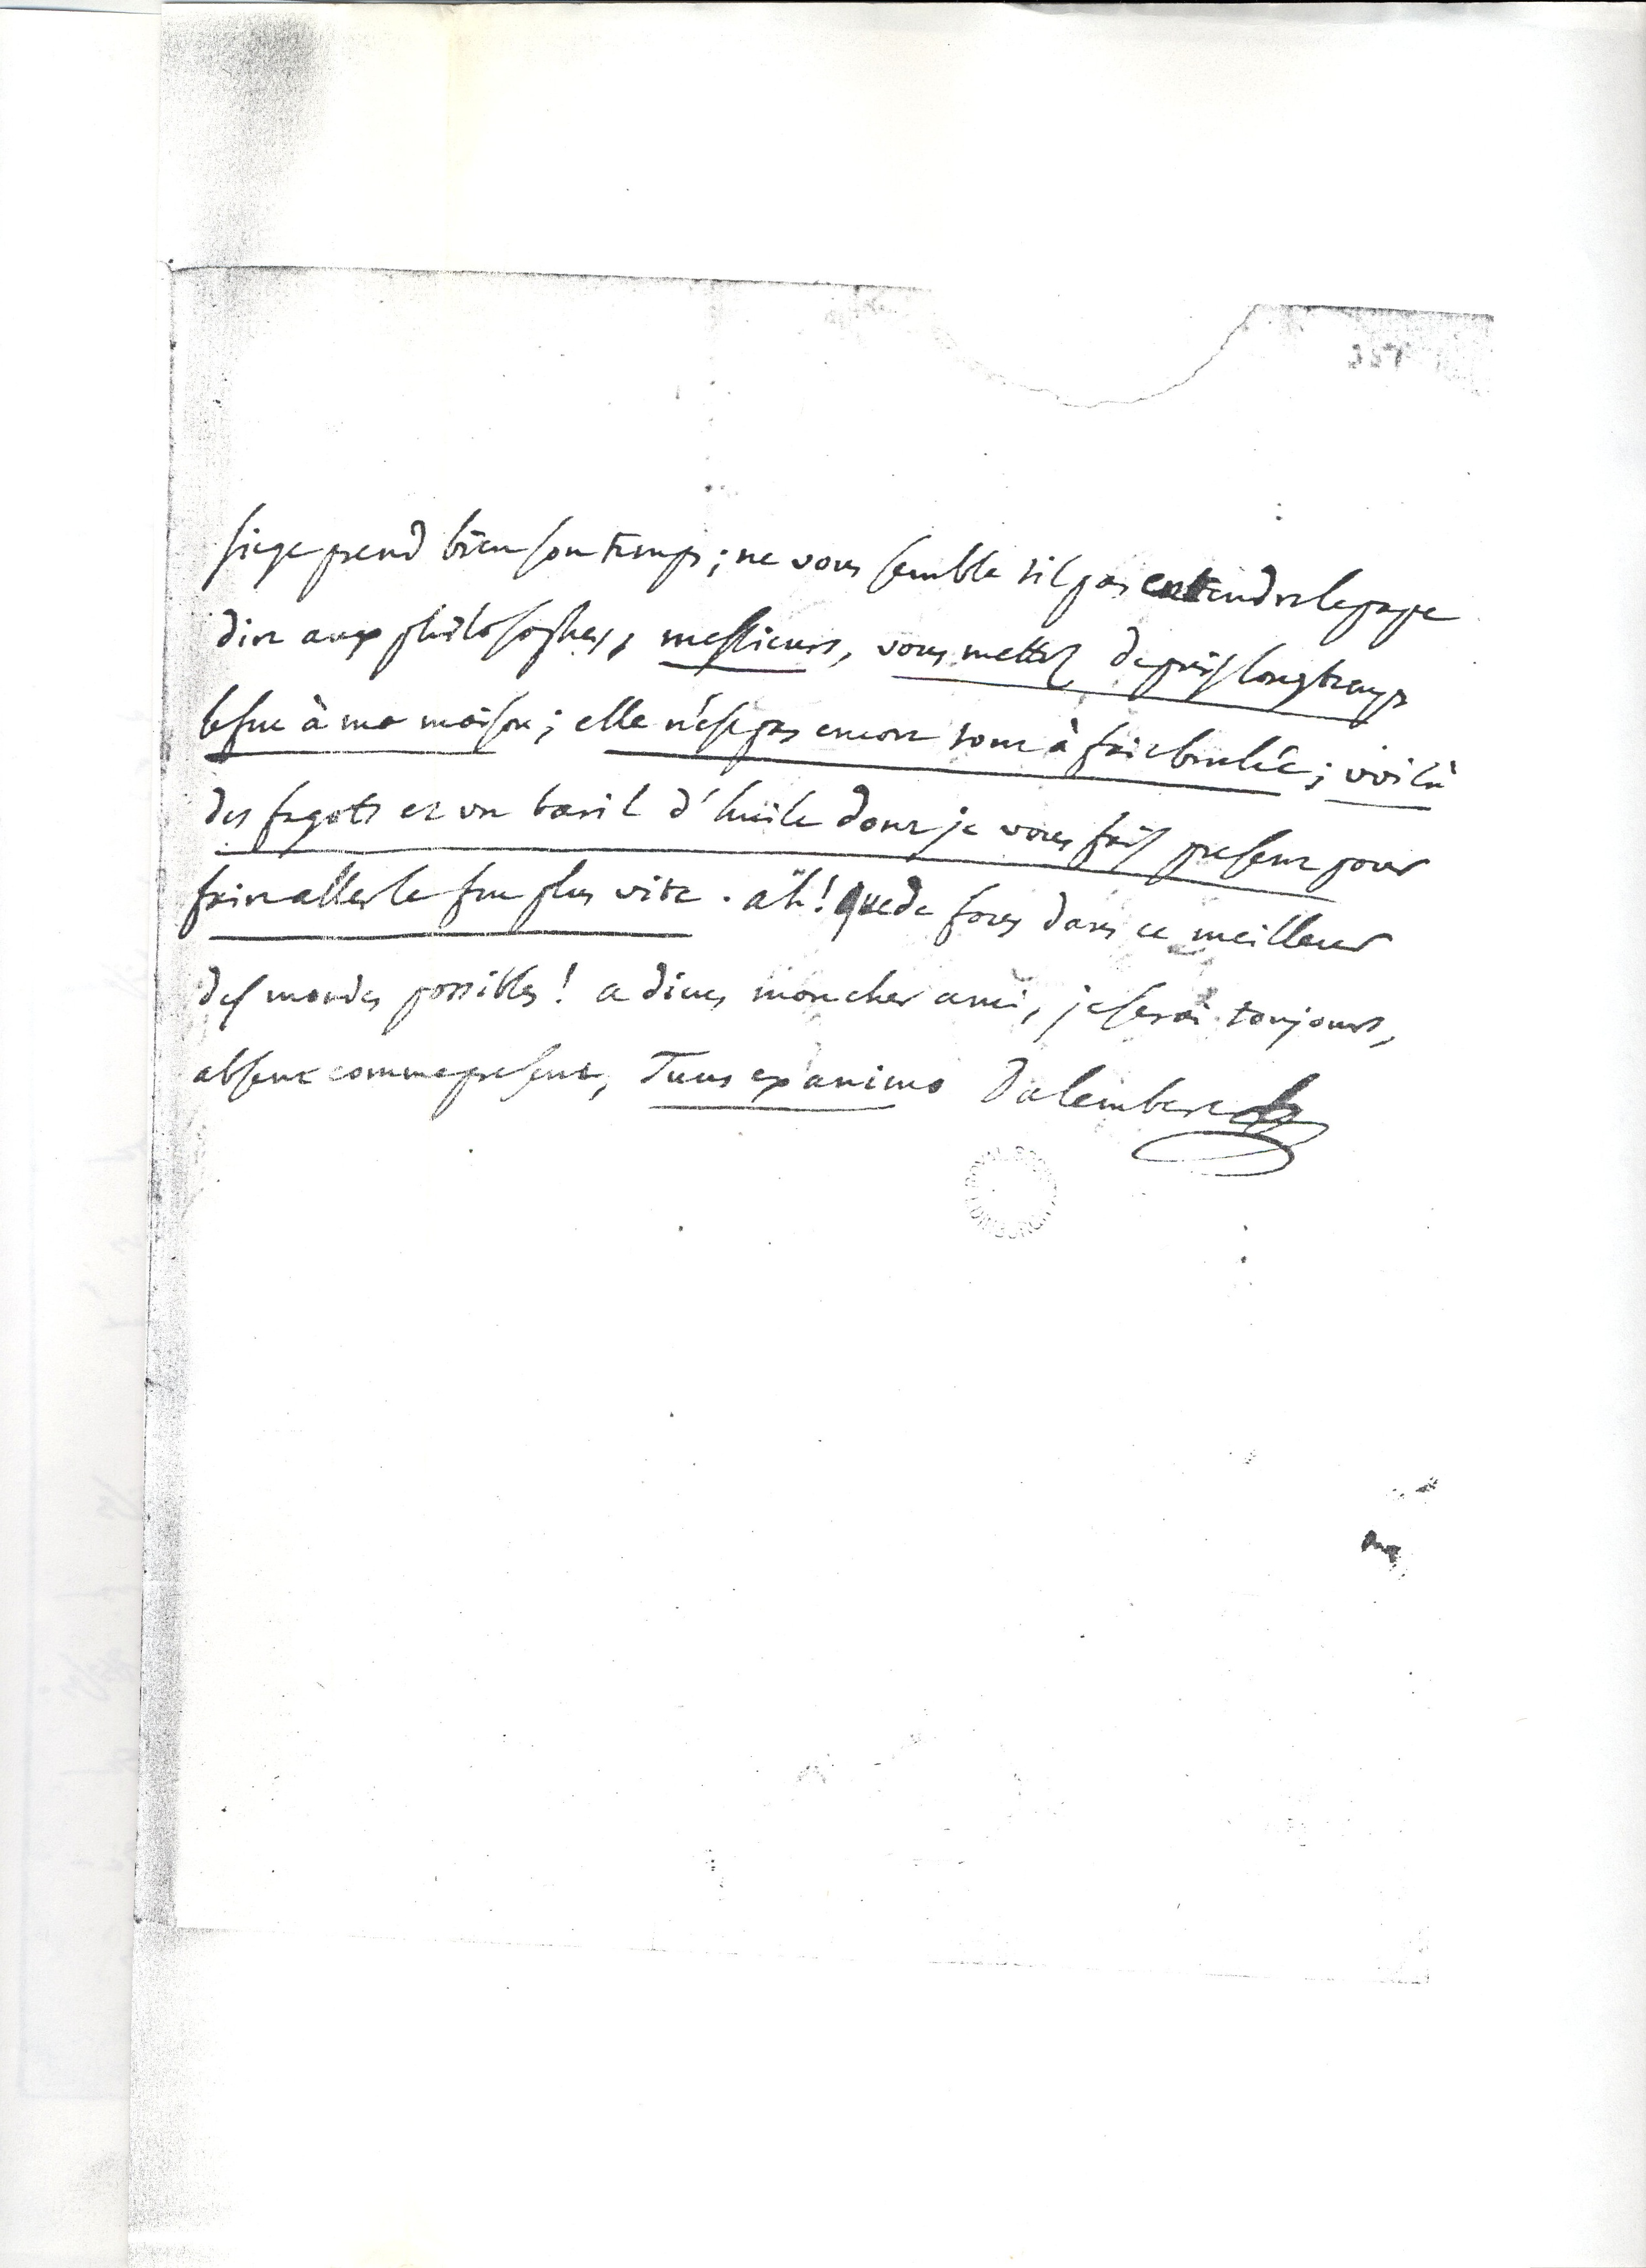 siege prend bien son temps; ne vous semble t'il pas entendre le pape
dire aux philosophes, messieurs, vous mettés depuis longtemps
le feu à ma maison; elle n'est pas encore tout à fait brulée; voilà
des fagots et un baril d'huile dont je vous fais present pour
faire aller le feu plus vite. ah! que de fous dans ce meilleur
des mondes possibles! adieu, mon cher ami, je serai toujours,
absent comme present, Tuus ex animo Dalembert